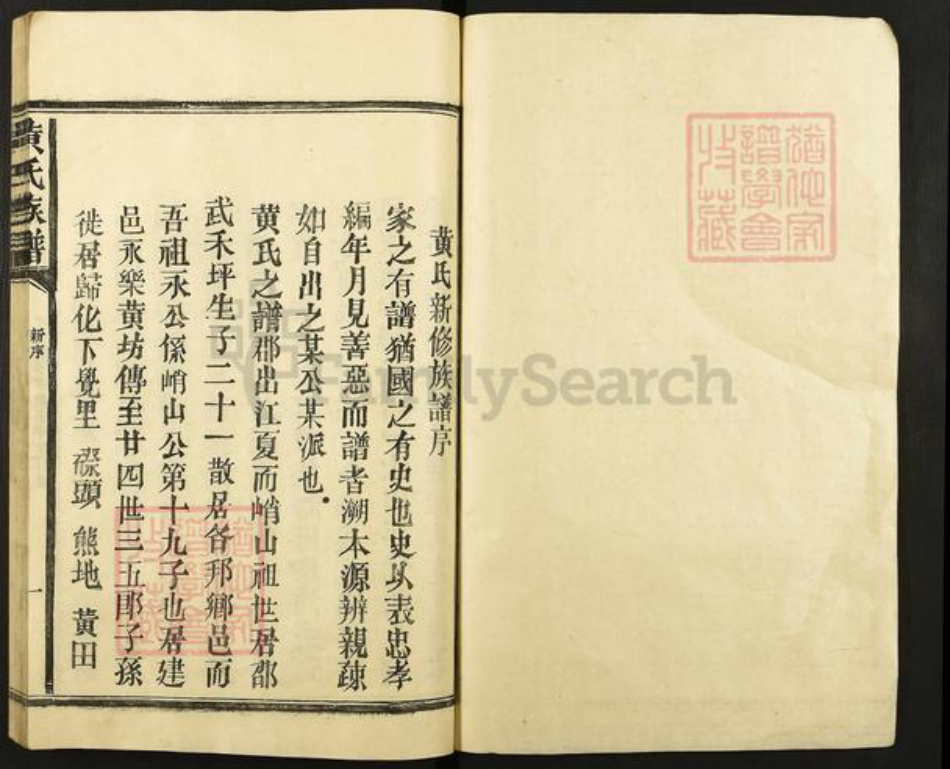 猶他家
譜學會
收藏
黃氏新修族譜序
家之有譜猶國之有史也史以表忠孝
編年月見善惡而譜者溯本源辨親疎
如自出之某公某派也
黃氏之譜郡出江夏而峭山祖世居邵
武禾坪生子二十一散居各邦鄉邑而
吾祖永公係峭山公第十九子也居建
邑永樂黃坊傳至廿四世三五郎子孫
徙居歸化下覺里 磜頭 熊地 黃田
黃氏族譜
新序
一
FamilySearch